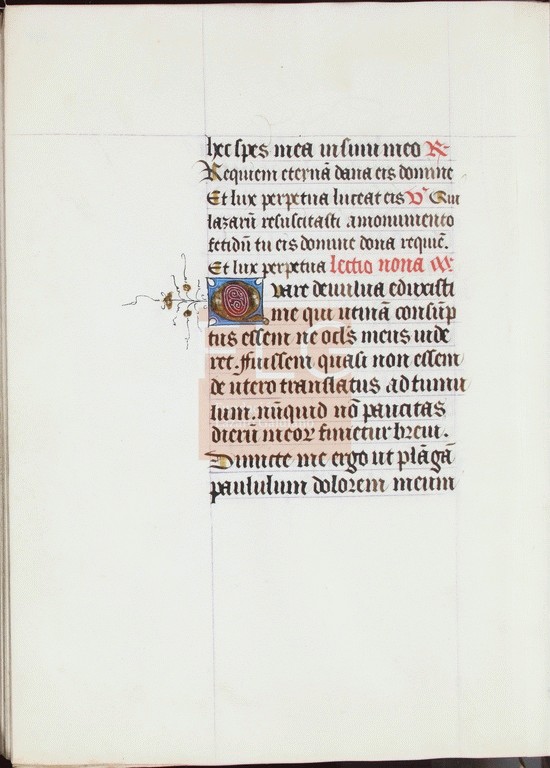 hec spes mea in sinu meo R
Requiem eternā dona eis domine
Et lux perpetua luceat eis V Qui
lazarū resuscitasti amonumento
fetidū tu eis domine dona requiē.
Et lux perpetua lectio nona
Quare de uulua eduxisti
me qui utinā consūp
tus essem ne ocls meus uide
ret. fuissem quasi non essem
de utero translatus ad tumu
lum. nūquid nō paucitas
dierū meoꝝ finietur breui.
Dimitte me ergo ut plāgā
paululum dolorem meum